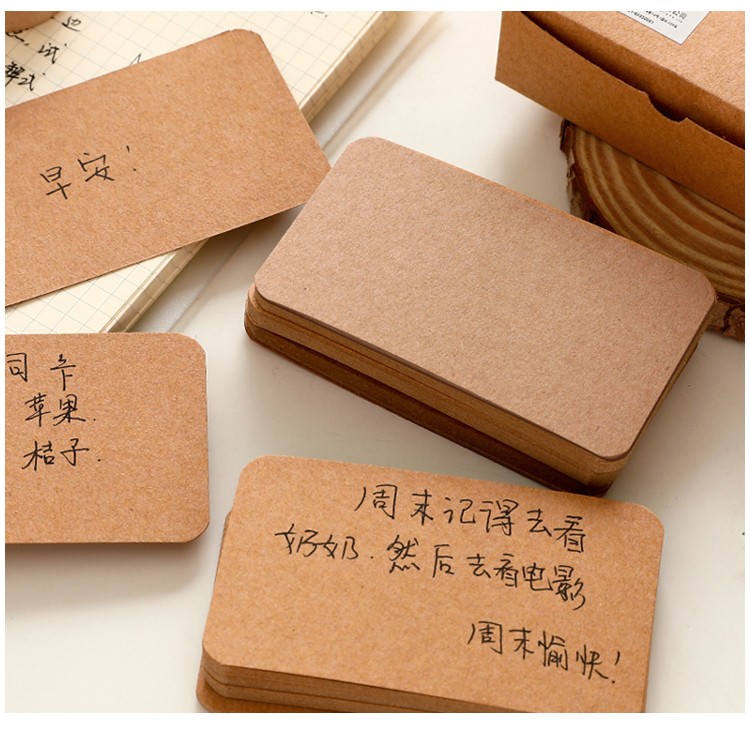 早安！
苹果.
桔子.
周末记得去看
奶奶.然后去看电影
周末愉快！